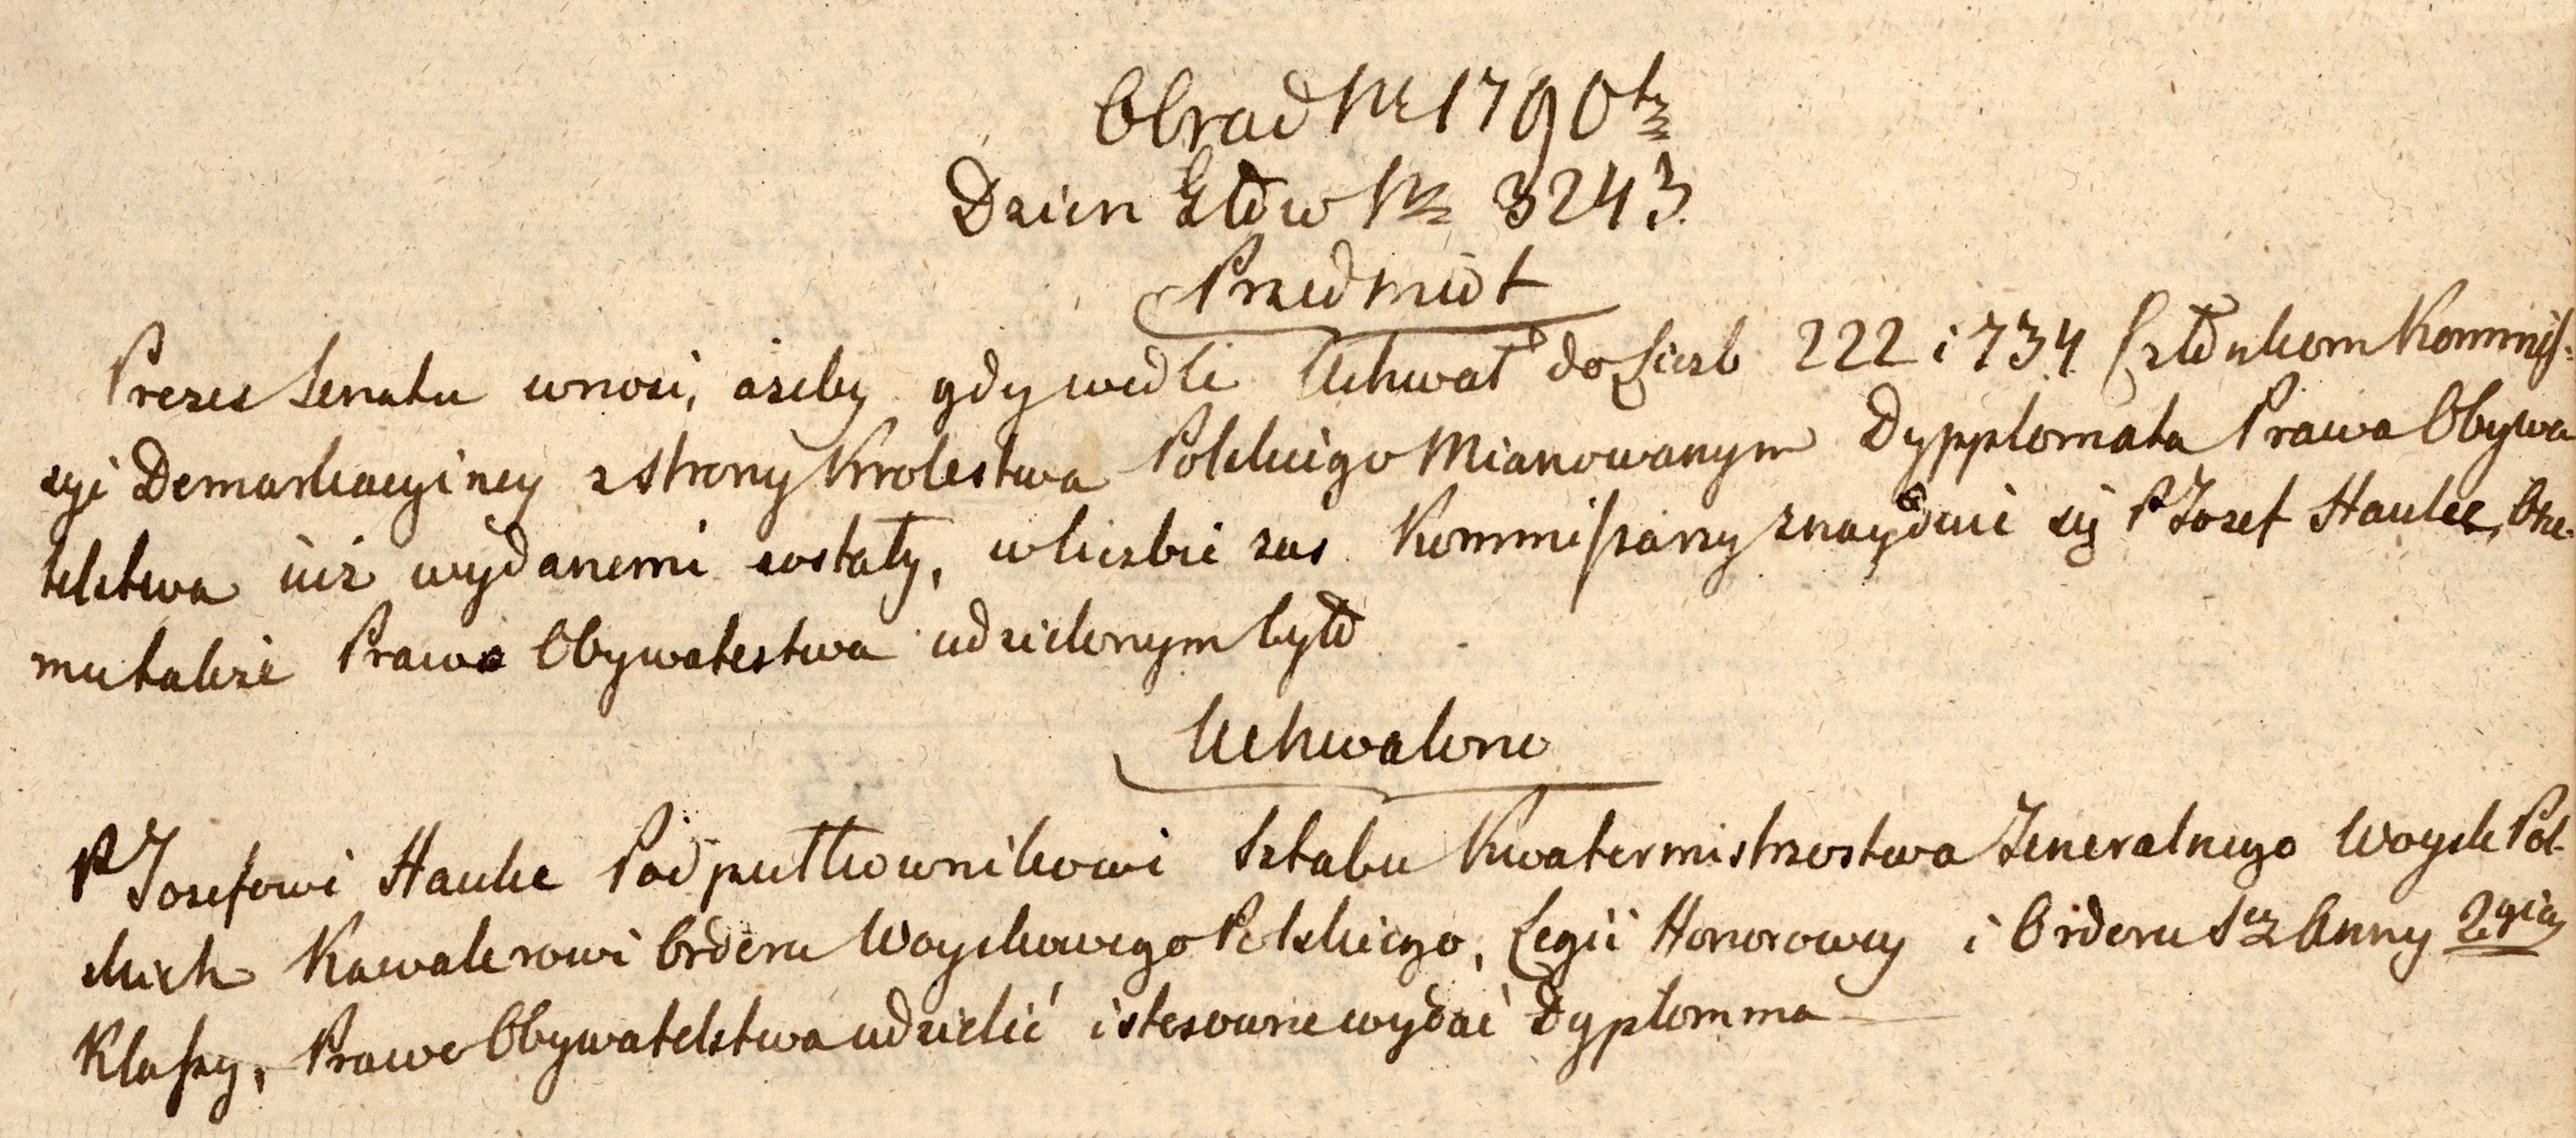 Obrad Nr 1790ty
Dzien Głow Nr 3243.
Przedmiot
Prezes Senatu wnosi, ażeby gdy wedle Uchwał do Liczb 222 i 734 Członkom Kommis-
syi Demarkacyiney z strony Krolestwa Polskiego Mianowanym Dypplomata Prawa Obywa
telstwa iuż wydanemi zostały, w liczbie zas Kommissarzy znayduie się P Jozef Hauke, one-
mu także Prawo Obywatestwa udzielonym było
Uchwalono
P Jozefowi Hauke Podpułkownikowi Sztabu Kwatermistrzostwa Jeneralnego Woysk Pol-
skich Kawalerowi Orderu Woyskowego Polskiego, Legii Honorowey i Orderu Stey Anny 2giey
Klassy, Prawo Obywatelstwa udzielić i stosowne wydać Dyplomma